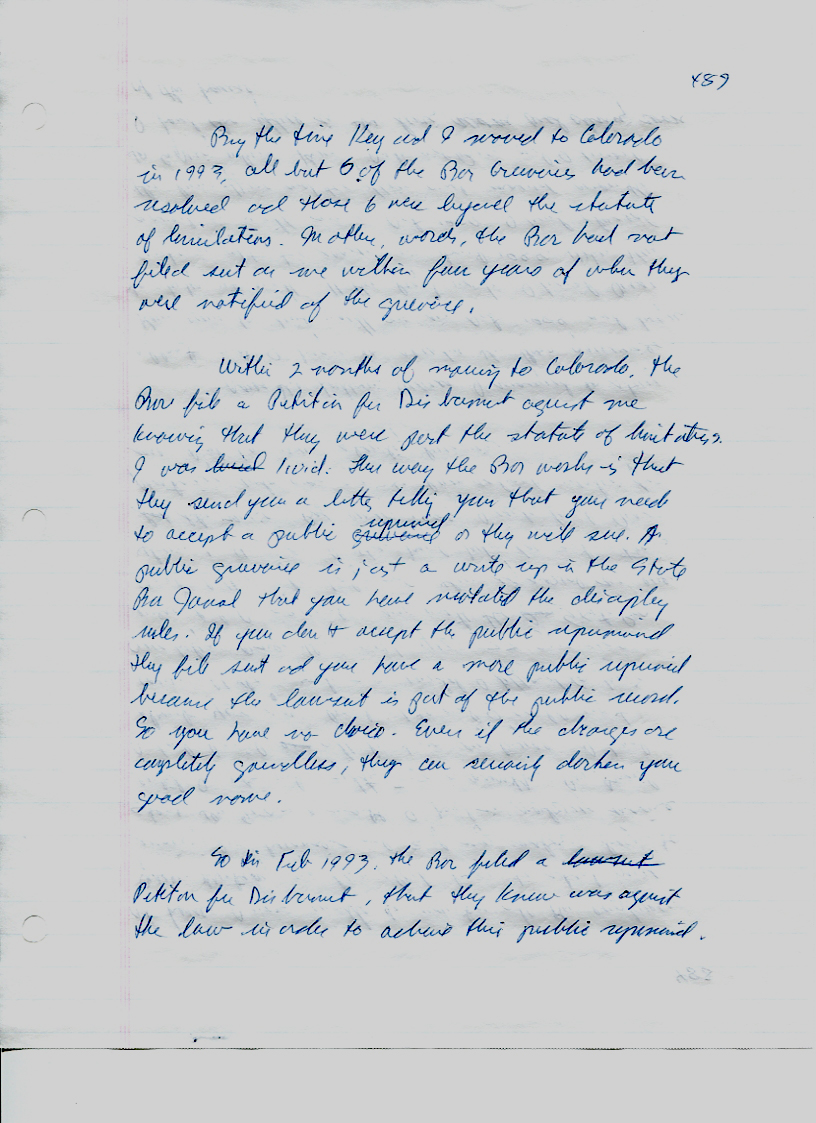 489
By the time Key and I moved to Colorado
in 1993, all but 6 of the Bar Grievances had been
resolved and those 6 were beyond the statute
of limitations. In other words, the Bar had not
filed suit on me within four years of when they
were notified of the grievance.
Within 2 months of moving to Colorado, the
Bar file a Petition for Disbarment against me
knowing that they were past the statute of limitations.
I was livid. The way the Bar works is that
they send you a letter telling you that you need
to accept a public reprimand or they will sue. A
public grievance is just a write up in the State
Bar Journal that you have violated the disciplinary
rules. If you don't accept the public reprimand
they file suit and you have a more public reprimand
because the lawsuit is part of the public record.
So you have no choice. Even if the charges are
completely groundless, they can seriously darken your
good name.
So in Feb 1993, the Bar filed a lawsuit
Petition for Disbarment, that they knew was against
the law in order to achieve this public reprimand.